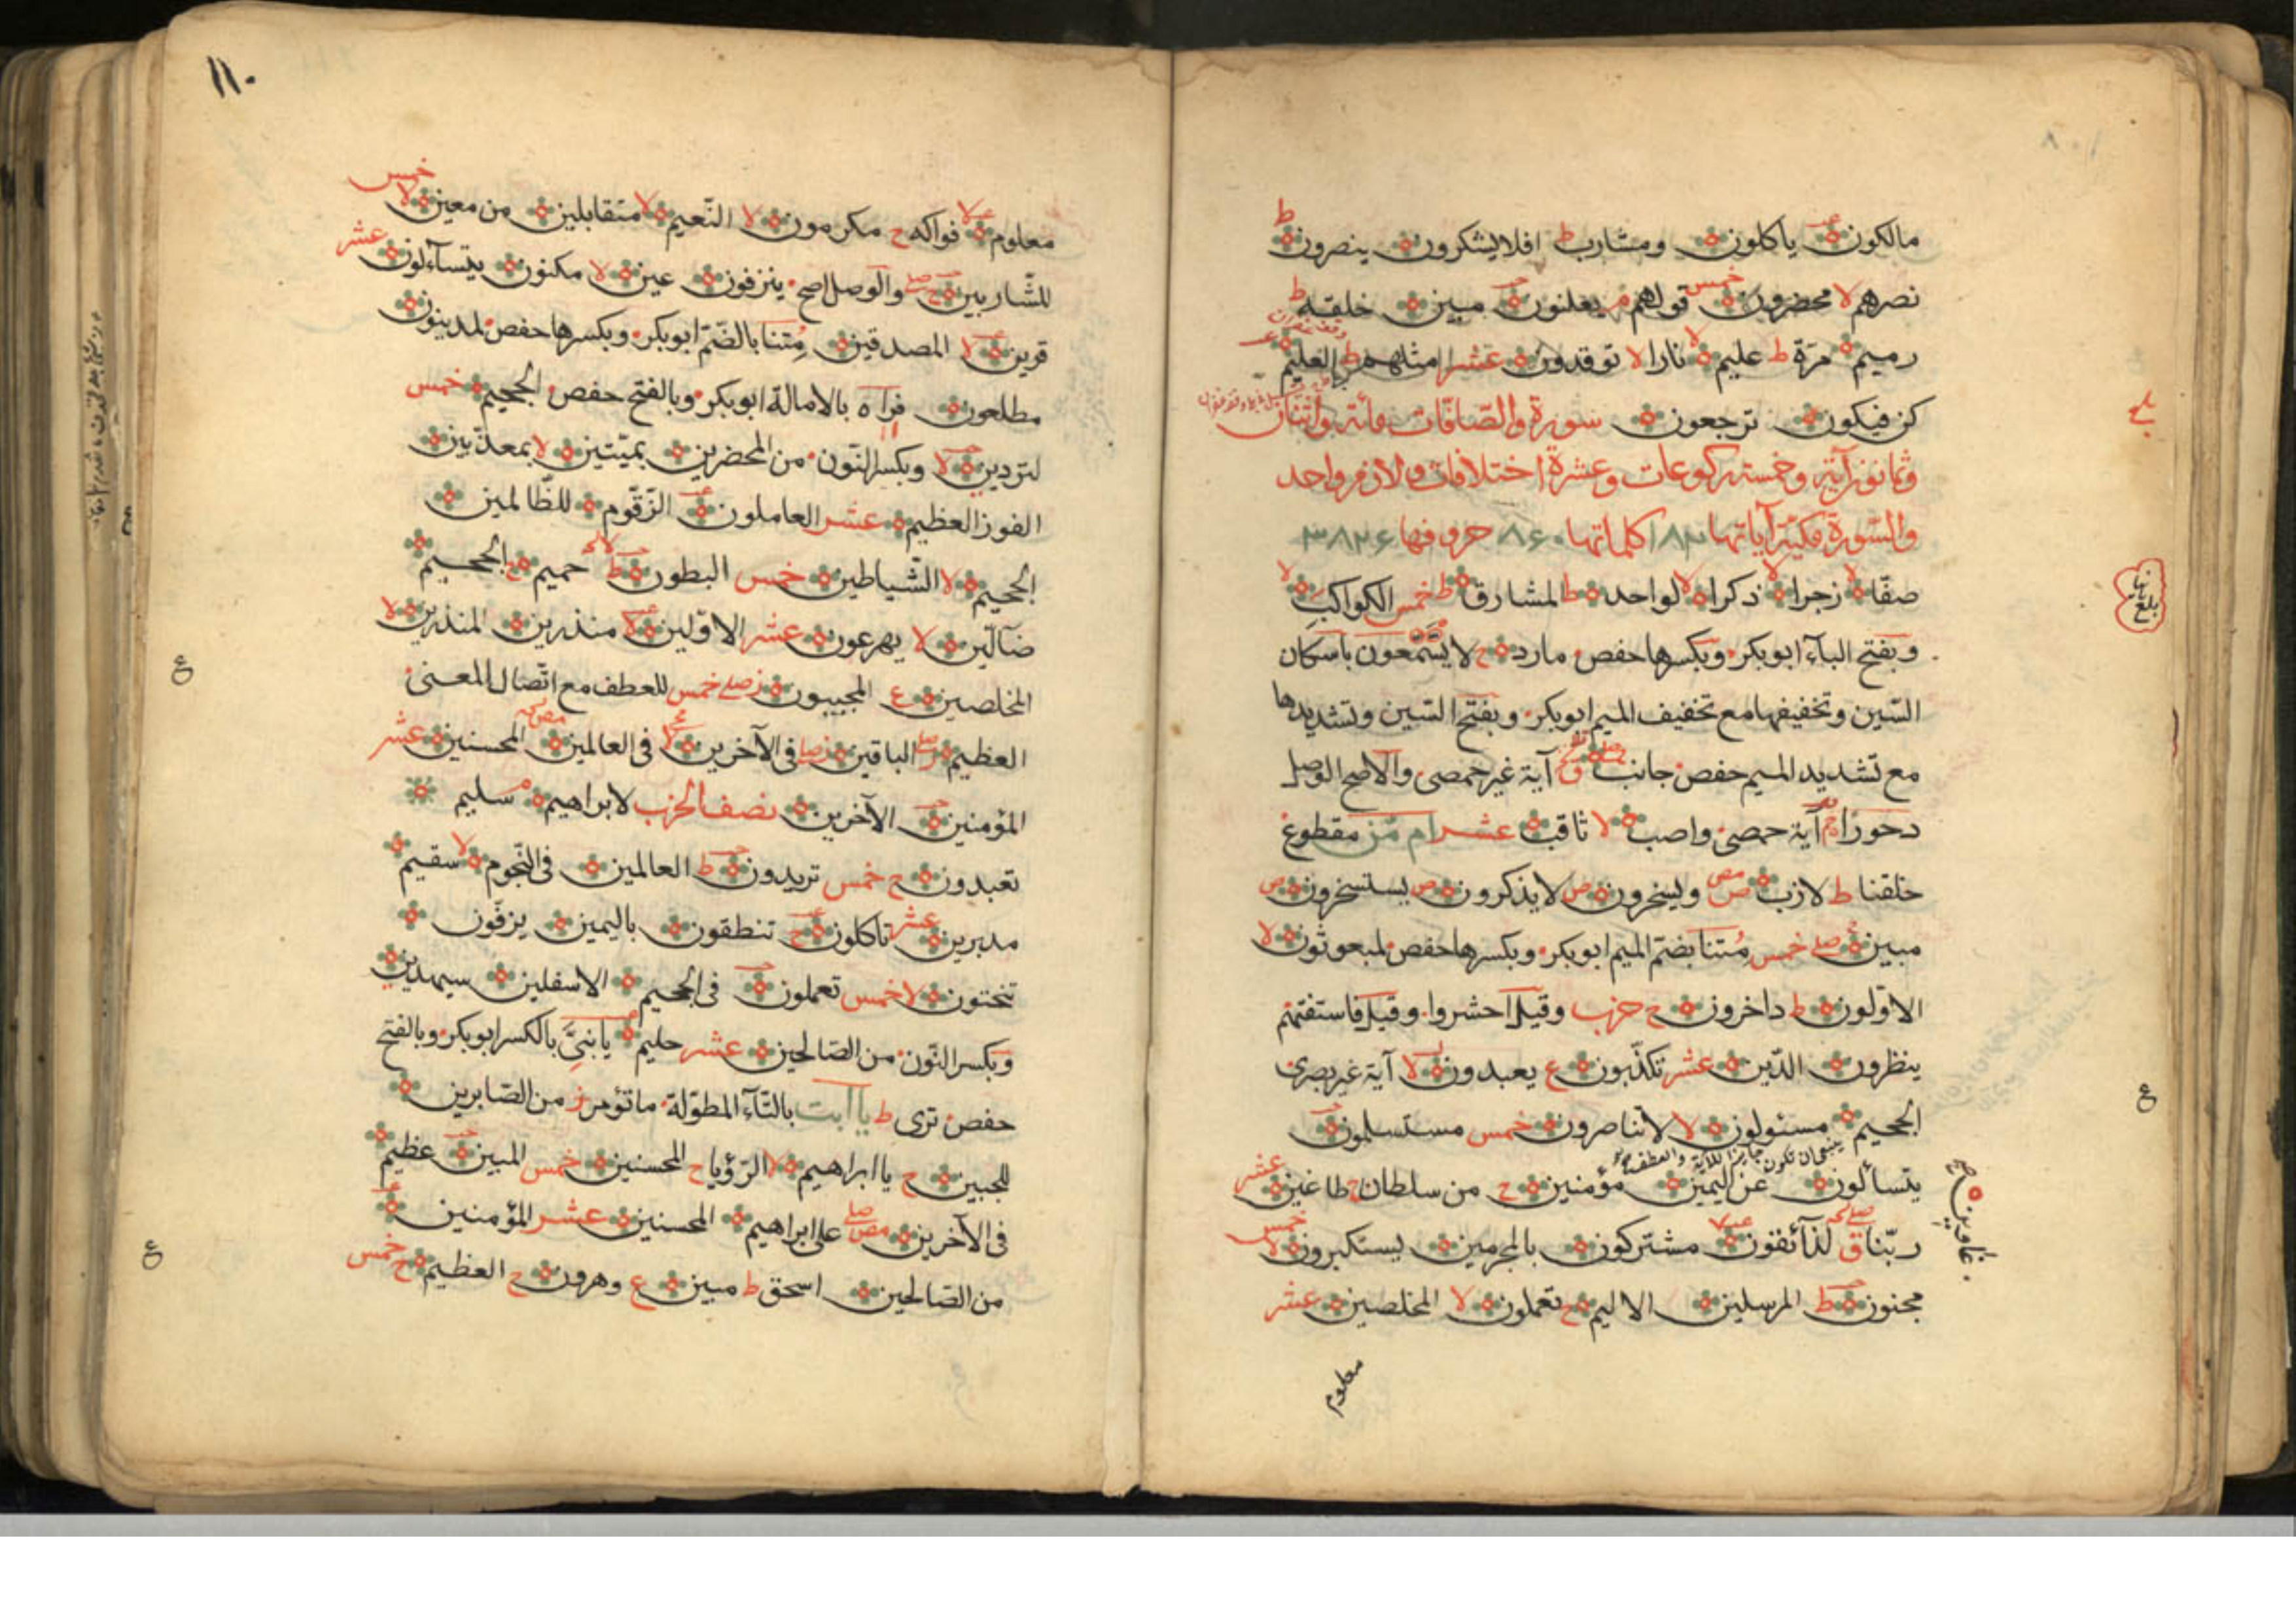 مالكون ياكلون ومشارب ط افلا يشكرون ينصرون ط
نصرهم لا محضرون خمس قولهم م يعلنون مبين خلقه ط
رميم مرة ط عليم لا نارا لا توقدون عشر مثلهم ط العليم
كن فيكون ترجعون سورة والصافات مائة واثنان
وثمانون آية وخمسة ركوعات وعشرة اختلافات
والسورة مكية آياتها ١٨٢ كلماتها ٨٦٠ حروفها ٣٨٢۶
صفا لا زجرا لا ذكرا لا لواحد ط المشارق ط خمس الكواكب لا
وبفتح الباء ابوبكر وبكسرها حفص مارد ح لا يسمعون باسكان
السين وتخفيفها مع تخفيف الميم ابوبكر وبفتح السين وتشديدها
مع تشديد الميم حفص جانب ق آية غير حمصى والاصح الوصل
دحورا آية حمصى واصب لا ثاقب عشر ام من مقطوع
خلقنا ط لازب ويسخرون ص لا يذكرون ص يستسخرون ص
مبين صلے خمس متنا بضم الميم ابوبكر وبكسرها حفص لمبعوثون لا
الاولون ط داخرون ح حزب وقيل احشروا وقيل فاستفتهم
ينظرون الدين عشر تكذبون ع يعبدون لا آية غير بصرى
الجحيم مسئولون لا لا تناصرون خمس مستسلمون
يتسائلون عن اليمين مؤمنين ح من سلطان ح طاغين عشر
ربنا ق لذائقون مشتركون بالمجرمين يستكبرون لا خمس
مجنون ط المرسلين الاليم ح تعملون لا المخلصين عشر
معلوم
بلغ
ع
غاوين
١١٠
معلوم لا فواكه ح مكرمون لا النعيم لا متقابلين من معين لا خمس
للشاربين ح والوصل اصح ينزفون عين لا مكنون يتسآءلون عشر
قرين لا المصدقين متنا بالضم ابوبكر وبكسرها حفص لمدينون
مطلعون فرآه بالامالة ابوبكر وبالفتح حفص الجحيم خمس
لتردين لا وبكسر النون من المحضرين بميتين لا بمعذبين
الفوز العظيم عشر العاملون الزقوم للظالمين
الجحيم لا الشياطين خمس البطون ط حميم ح الجحيم
ضآلين لا يهرعون عشر الاولين لا منذرين المنذرين لا
المخلصين ع المجيبون ز صلے خمس للعطف مع اتصال المعنى
العظيم ز الباقين ز فى الآخرين فى العالمين المحسنين عشر
المؤمنين الآخرين نصف الحزب لابراهيم م سليم
تعبدون ح خمس تريدون ط العالمين فى النجوم لا سقيم
مدبرين عشر تاكلون ح تنطقون باليمين يزفون
تنحتون لا خمس تعملون فى الجحيم الاسفلين سيهدين
وبكسر النون من الصالحين عشر حليم يا بنى بالكسر ابوبكر وبالفتح
حفص ترى ط يا ابت بالتاء المطولة ما تؤمر ز من الصابرين
للجبين ح يا ابراهيم لا الرؤيا ح المحسنين خمس المبين عظيم
فى الآخرين على ابراهيم المحسنين عشر المؤمنين
من الصالحين اسحق ط مبين ع وهرون ح العظيم ح خمس
ع
ع